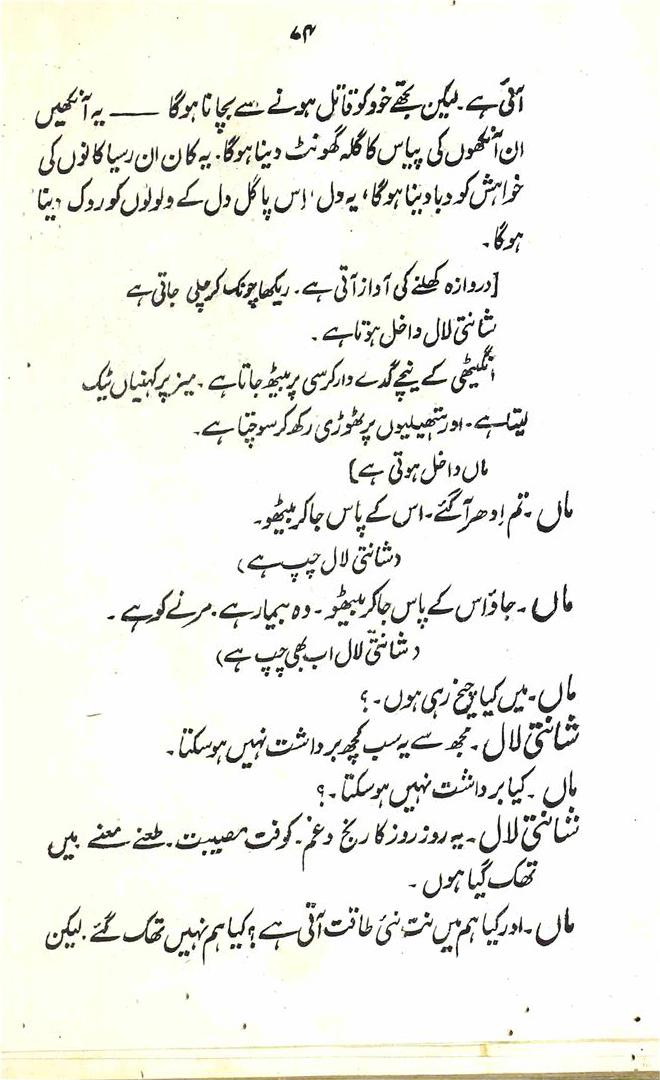 ۷۴
آتی ہے۔ لیکن تجھے خود کو قاتل ہونے سے بچانا ہوگا —— یہ آنکھیں
ان آنکھوں کی پیاس کا گلہ گھونٹ دینا ہوگا۔ یہ کان ان رسیا کانوں کی
خواہش کو دبا دینا ہوگا، یہ دل، اس پاگل دل کے ولولوں کو روک دینا
ہوگا۔
[دروازہ کھلنے کی آواز آتی ہے۔ ریکھا چونک کر چلی جاتی ہے
شانتی لال داخل ہوتا ہے۔
انگیٹھی کے نیچے گدے دار کرسی پر بیٹھ جاتا ہے۔ میز پر کہنیاں ٹیک
لیتا ہے۔ اور ہتھیلیوں پر ٹھوڑی رکھ کر سوچتا ہے۔
ماں داخل ہوتی ہے)
ماں ۔ تم اِدھر آ گئے۔ اس کے پاس جا کر بیٹھو۔
(شانتی لال چپ ہے)
ماں ۔ جاؤ اس کے پاس جا کر بیٹھو ۔ وہ بیمار ہے۔ مرنے کو ہے ۔
(شانتی لال اب بھی چپ ہے)
ماں ۔ میں کیا چیخ رہی ہوں۔؟
شانتی لال ۔ مجھ سے یہ سب کچھ برداشت نہیں ہو سکتا۔
ماں ۔ کیا برداشت نہیں ہو سکتا۔؟
شانتی لال ۔ یہ روز روز کا رنج و غم۔ کوفت مصیبت ۔ طعنے معنے میں
تھک گیا ہوں ۔
ماں ۔ اور کیا ہم میں نت نئی طاقت آتی ہے؟ کیا ہم نہیں تھک گئے۔ لیکن